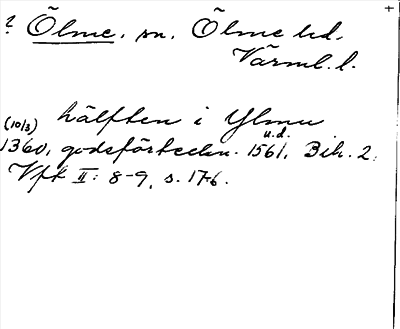 ? Ölme, sn. Ölme hd.
Värml. l.
hälften i Ylmu
u.d.
(10/3) 1360, godsförteckn. 1561, Bih. 2.
Vfk II: 8-9, s. 176.